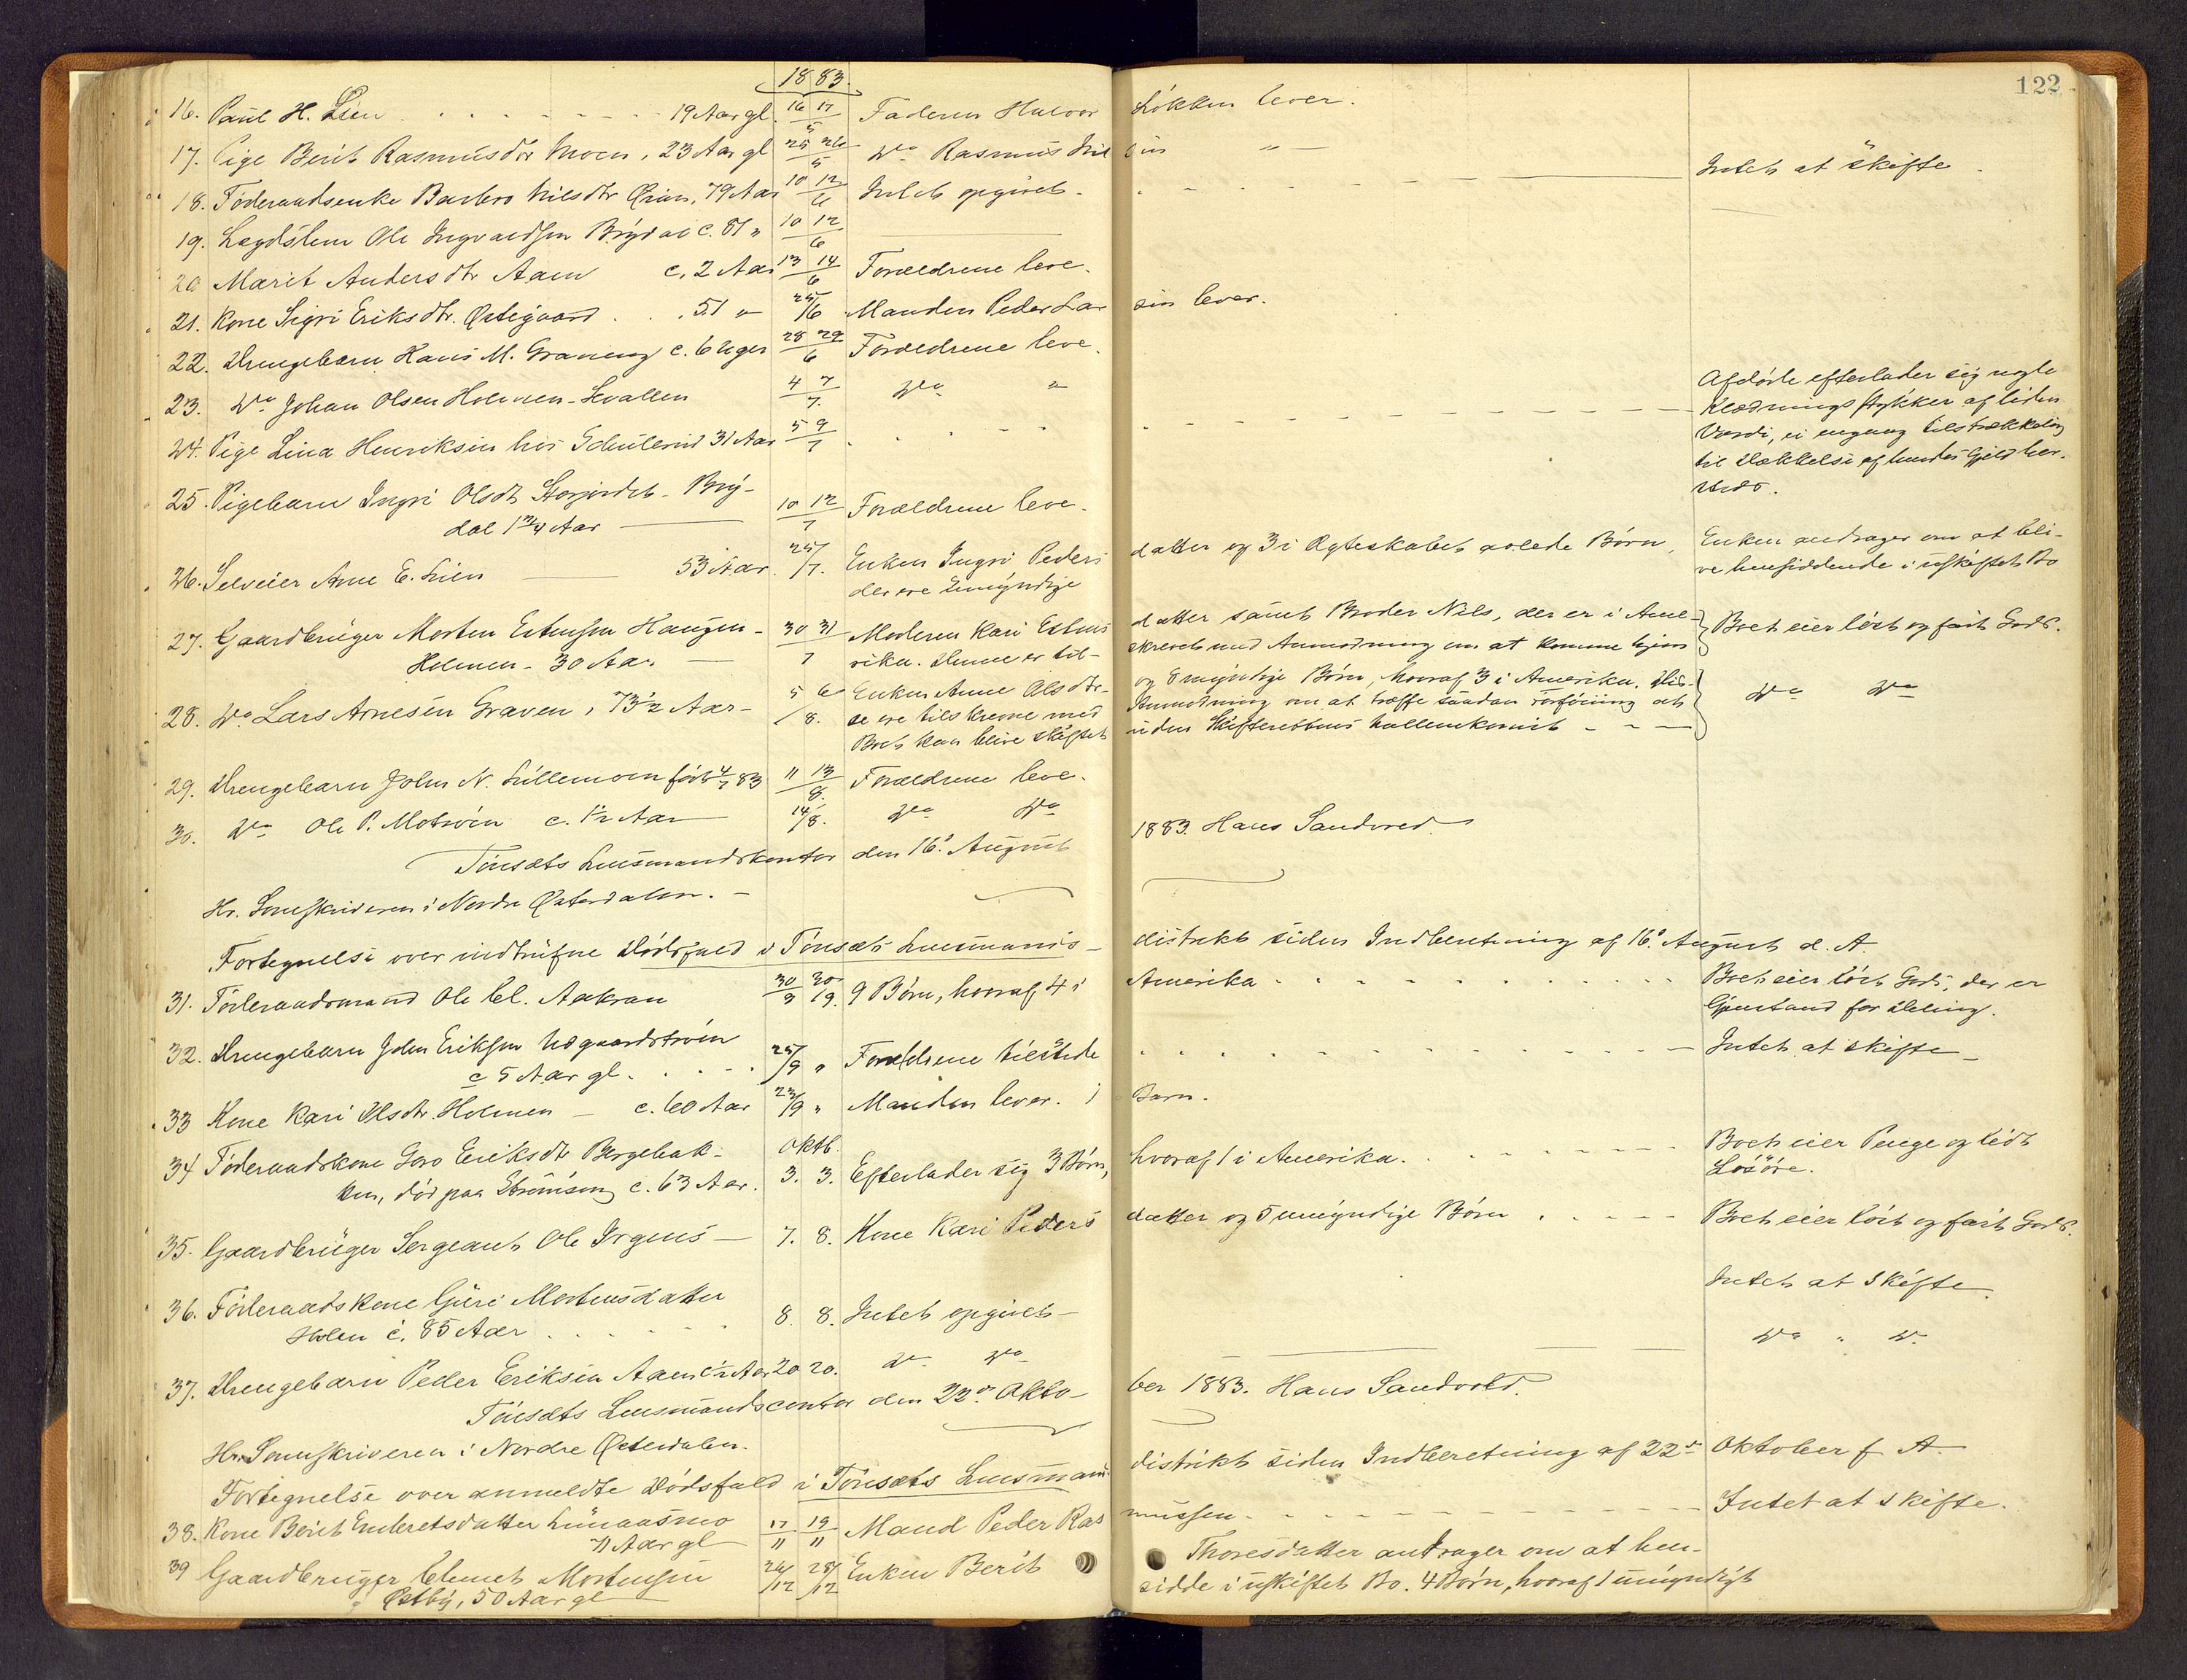 122
1883.
16. Paul H. Lien . . . . . . 19 Aar gl. 16/5 17/5 Faderen Halvor Løkken lever.
17. Pige Berit Rasmusdtr Moen, 23 Aar gl 25/5 26/5 Do Rasmus Nil sen "
18. Føderaadsenke Barbro Nilsdtr Øian, 79 Aar 10/6 12/6 Intet opgivet. Intet at skifte.
19. Lægdslem Ole Ingvaldsen Brydal c. 81 " 10/6 12/6
20 Marit Andersdtr Aaen c. 2 Aar 13/6 14/6 Forældrene leve.
21. Kone Sigri Eriksdtr. Østigaard . . 51 " 25/6 Manden Peder Lar sen lever.
22. Drengebarn Hans M. c. 6 Uger 28/6 29/6 Forældrene leve.
23. Do Johan Olsen Holmen- 4/7 7/7 Do "
24. Pige Lina Henriksen hos 31 Aar 5/7 9/7
Afdøde efterlader sig nogle
Klædningsstykker af liden
Værdi, ei engang tilstrækkelig
til Dækkelse af hendes Gjeld her-
steds.
25. Pigebarn Ingri Olsdt. Bry-
dal 1 3/4 Aar 10/7 12/7 Forældrene leve.
26. Selveier Arne E. Lien 53 Aar. 25/7. Enken Ingri Peders datter og 3 i Ægteskabet avlede Børn,
der ere Umyndige
Enken andrager om at bli-
ve hensiddende i uskiftet Bo
27. Gaardbruger Morten Estensen Haugen-
Holmen - 30 Aar. 30/7 31/7 Moderen Kari Estens datter samt Broder Nils, der er i Ame-
rika. Denne er til- skrevet med Anmodning om at komme hjem
Boet eier løst og fast Gods.
28. Do Lars Arnesen Graven, 73 1/2 Aar- 5 6/8. Enken Anne Olsdtr- og 8 myndige Børn, hvoraf 3 i Amerika. Dis-
se ere tilskrevne med Anmodning om at træffe saadan Forføining at
Boet kan blive skiftet uden Skifterettens Mellemkomst
Do Do
29. Drengebarn John N. Lillemoen født 4/7 83 11/8 13/8. Forældrene leve.
30. Do Ole P. Motrøen c. 1/2 Aar 14/8. Do Do
Tønsæts Lensmandskontor den 16. August 1883. Hans Sandvold.
Hr. Sorenskriveren i Nordre Østerdalen.
Fortegnelse over indtrufne Dødsfald i Tønsæts Lensmands- distrikt siden Indberetning af 16. August d. A.
31. Føderaadsmand Ole Cl. Aakran 30/9 30/9. 9 Børn, hvoraf 4 i Amerika
Boet eier løst Gods, der er
Gjenstand for Deling.
32. Drengebarn John Eriksen Negaardstrøen
c 5 Aar gl. 25/9 " Forældrene tilstede
Intet at skifte
33 Kone Kari Olsdtr. Holmen - c. 60 Aar 23/9 " Manden lever. 1 Barn.
34 Føderaadskone Goro Eriksdtr Bergebak-
ken, død paa Strømseng c. 63 Aar. Oktb. 3. 3. Efterlader sig 3 Børn, hvoraf 1 i Amerika.
Boet eier Penge og lidt
Løsøre.
35. Gaardbruger Sergeant Ole Irgens - 7. 8. Kone Kari Peders datter og 5 umyndige Børn
Boet eier løst og fast Gods.
36. Føderaadskone Guri Mortensdatter
Holen c. 85 Aar 8. 8. Intet opgivet -
Intet at Skifte.
37. Drengebarn Peder Eriksen Aaen c 1/2 Aar 20 20. Do Do
Do " Do
Tønsæts Lensmandscontor den 22de Okto- ber 1883. Hans Sandvold.
Hr. Sorenskriveren i Nordre Østerdalen.
Fortegnelse over anmeldte Dødsfald i Tønsæts Lensmands distrikt siden Indberetning af 22de Oktober f A.
38. Kone Berit Embretsdatter Lunaasmo
71 Aar gl 17/11 19/11 Mand Peder Ras mussen.
Intet at skifte.
39 Gaardbruger Clemet Mortensen
Østby, 50 Aar gl 26/12 28/12 Enken Berit Thoresdatter andrager om at hen-
sidde i uskiftet Bo. 4 Børn, hvoraf 1 umyndigt